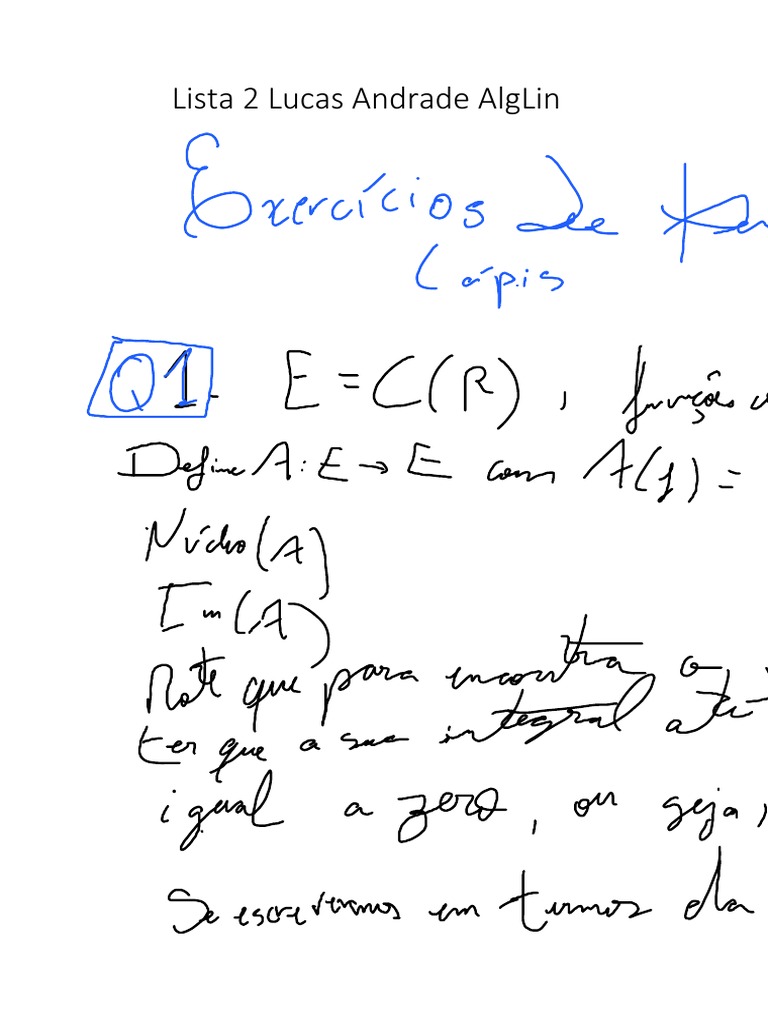 Lista 2 Lucas Andrade AlgLin
Exercícios de
Lápis
Q1. E = C(R), funções
Define A: E → E com A(f) =
Núcleo(A)
Im(A)
Note que para encontra o
ter que a sua integral até
igual a zero, ou seja,
Se escrevermos em termos da